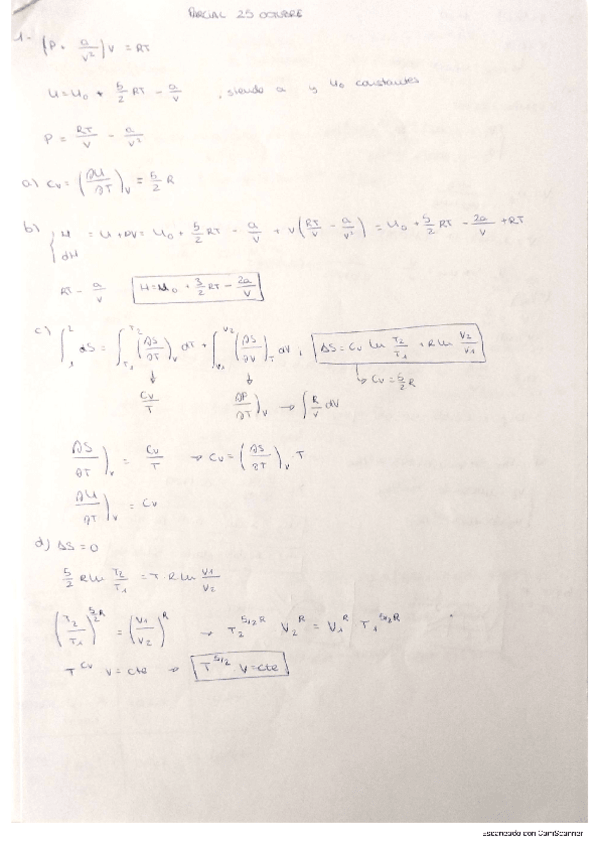 PARCIAL 25 OCTUBRE
1.- (P + a/v²) v = RT
u = u₀ + 5/2 RT - a/v , siendo a y u₀ constantes
P = RT/v - a/v²
a) Cv = (∂u/∂T)v = 5/2 R
b) { H = u + PV = u₀ + 5/2 RT - a/v + v(RT/v - a/v²) = u₀ + 5/2 RT - 2a/v + RT
dH
RT - a/v H = u₀ + 3/2 RT - 2a/v
c) ∫₁² dS = ∫T₁^T₂ (∂S/∂T)v dT + ∫v₁^v₂ (∂S/∂v)T dv , ΔS = Cv ln T₂/T₁ + R ln v₂/v₁
↓ ↓ ↳ Cv = 5/2 R
Cv/T ∂P/∂T)v → ∫ R/v dv
∂S/∂T)v = Cv/T → Cv = (∂S/∂T)v T
∂u/∂T)v = Cv
d) ΔS = 0
5/2 R ln T₂/T₁ = + R ln v₁/v₂
(T₂/T₁)^5/2 R = (v₁/v₂)^R → T₂^5/2 R v₂^R = v₁^R T₁^5/2 R
T^Cv v = cte → T^5/2 v = cte
Escaneado con CamScanner